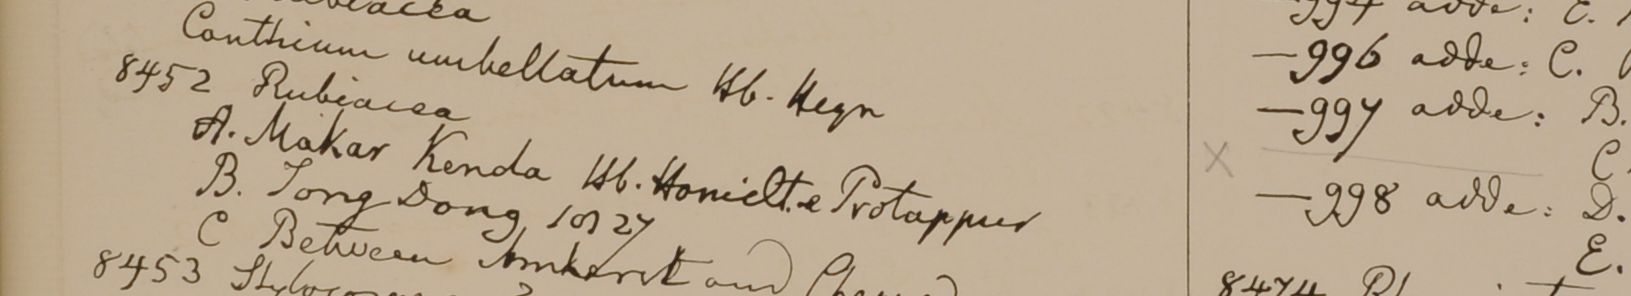 Canthium umbellatum Hb. Heyn
8452 Rubiacea
A. Makar Kenda Hb. Hamilt. e Protappur
B. Tong Dong 1827
C Between Amherst and
8453
adde: E.
—996 adde: C.
—997 adde: B.
C.
—998 adde: D.
E.
8474